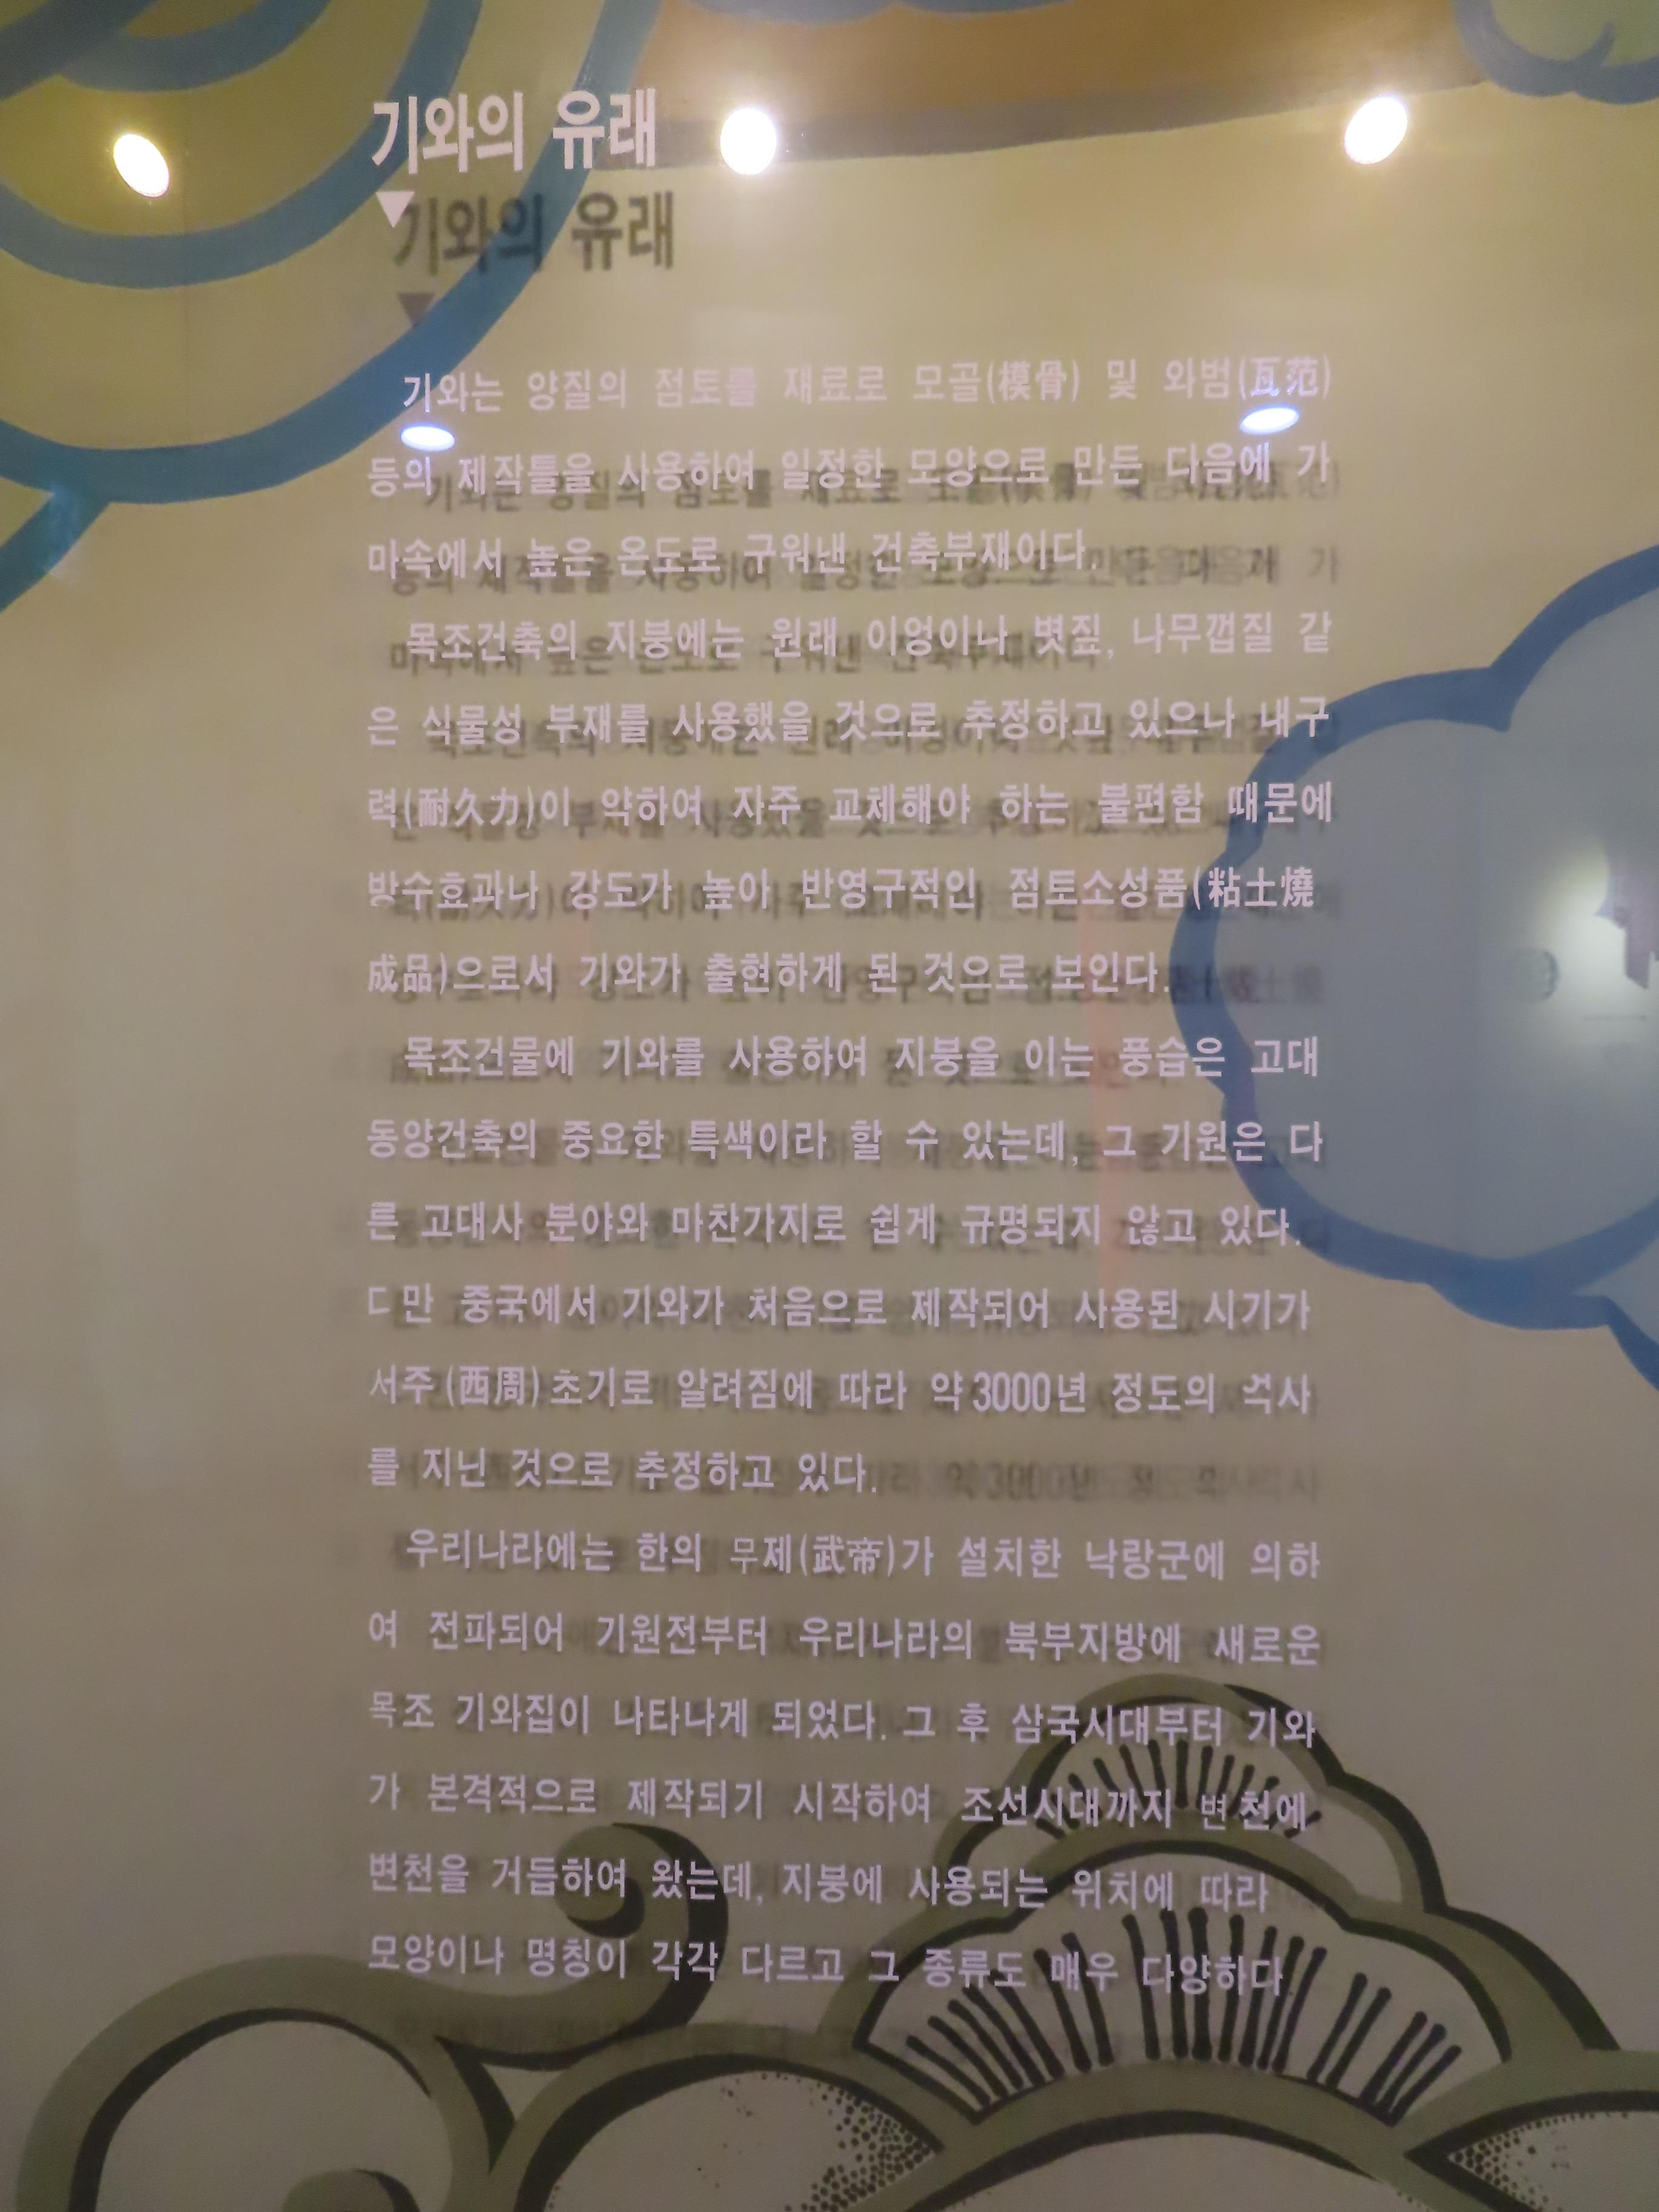 기와의 유래
기와는 양질의 점토를 재료로 모골(模骨) 및 와범(瓦范)
등의 제작틀을 사용하여 일정한 모양으로 만든 다음에 가
마속에서 높은 온도로 구워낸 건축부재이다.
목조건축의 지붕에는 원래 이엉이나 볏짚, 나무껍질 같
은 식물성 부재를 사용했을 것으로 추정하고 있으나 내구
력(耐久力)이 약하여 자주 교체해야 하는 불편함 때문에
방수효과나 강도가 높아 반영구적인 점토소성품(粘土燒
成品)으로서 기와가 출현하게 된 것으로 보인다.
목조건물에 기와를 사용하여 지붕을 이는 풍습은 고대
동양건축의 중요한 특색이라 할 수 있는데, 그 기원은 다
른 고대사 분야와 마찬가지로 쉽게 규명되지 않고 있다.
다만 중국에서 기와가 처음으로 제작되어 사용된 시기가
서주(西周)초기로 알려짐에 따라 약3000년 정도의 역사
를 지닌 것으로 추정하고 있다.
우리나라에는 한의 무제(武帝)가 설치한 낙랑군에 의하
여 전파되어 기원전부터 우리나라의 북부지방에 새로운
목조 기와집이 나타나게 되었다. 그 후 삼국시대부터 기와
가 본격적으로 제작되기 시작하여 조선시대까지 변천에
변천을 거듭하여 왔는데, 지붕에 사용되는 위치에 따라
모양이나 명칭이 각각 다르고 그 종류도 매우 다양하다.